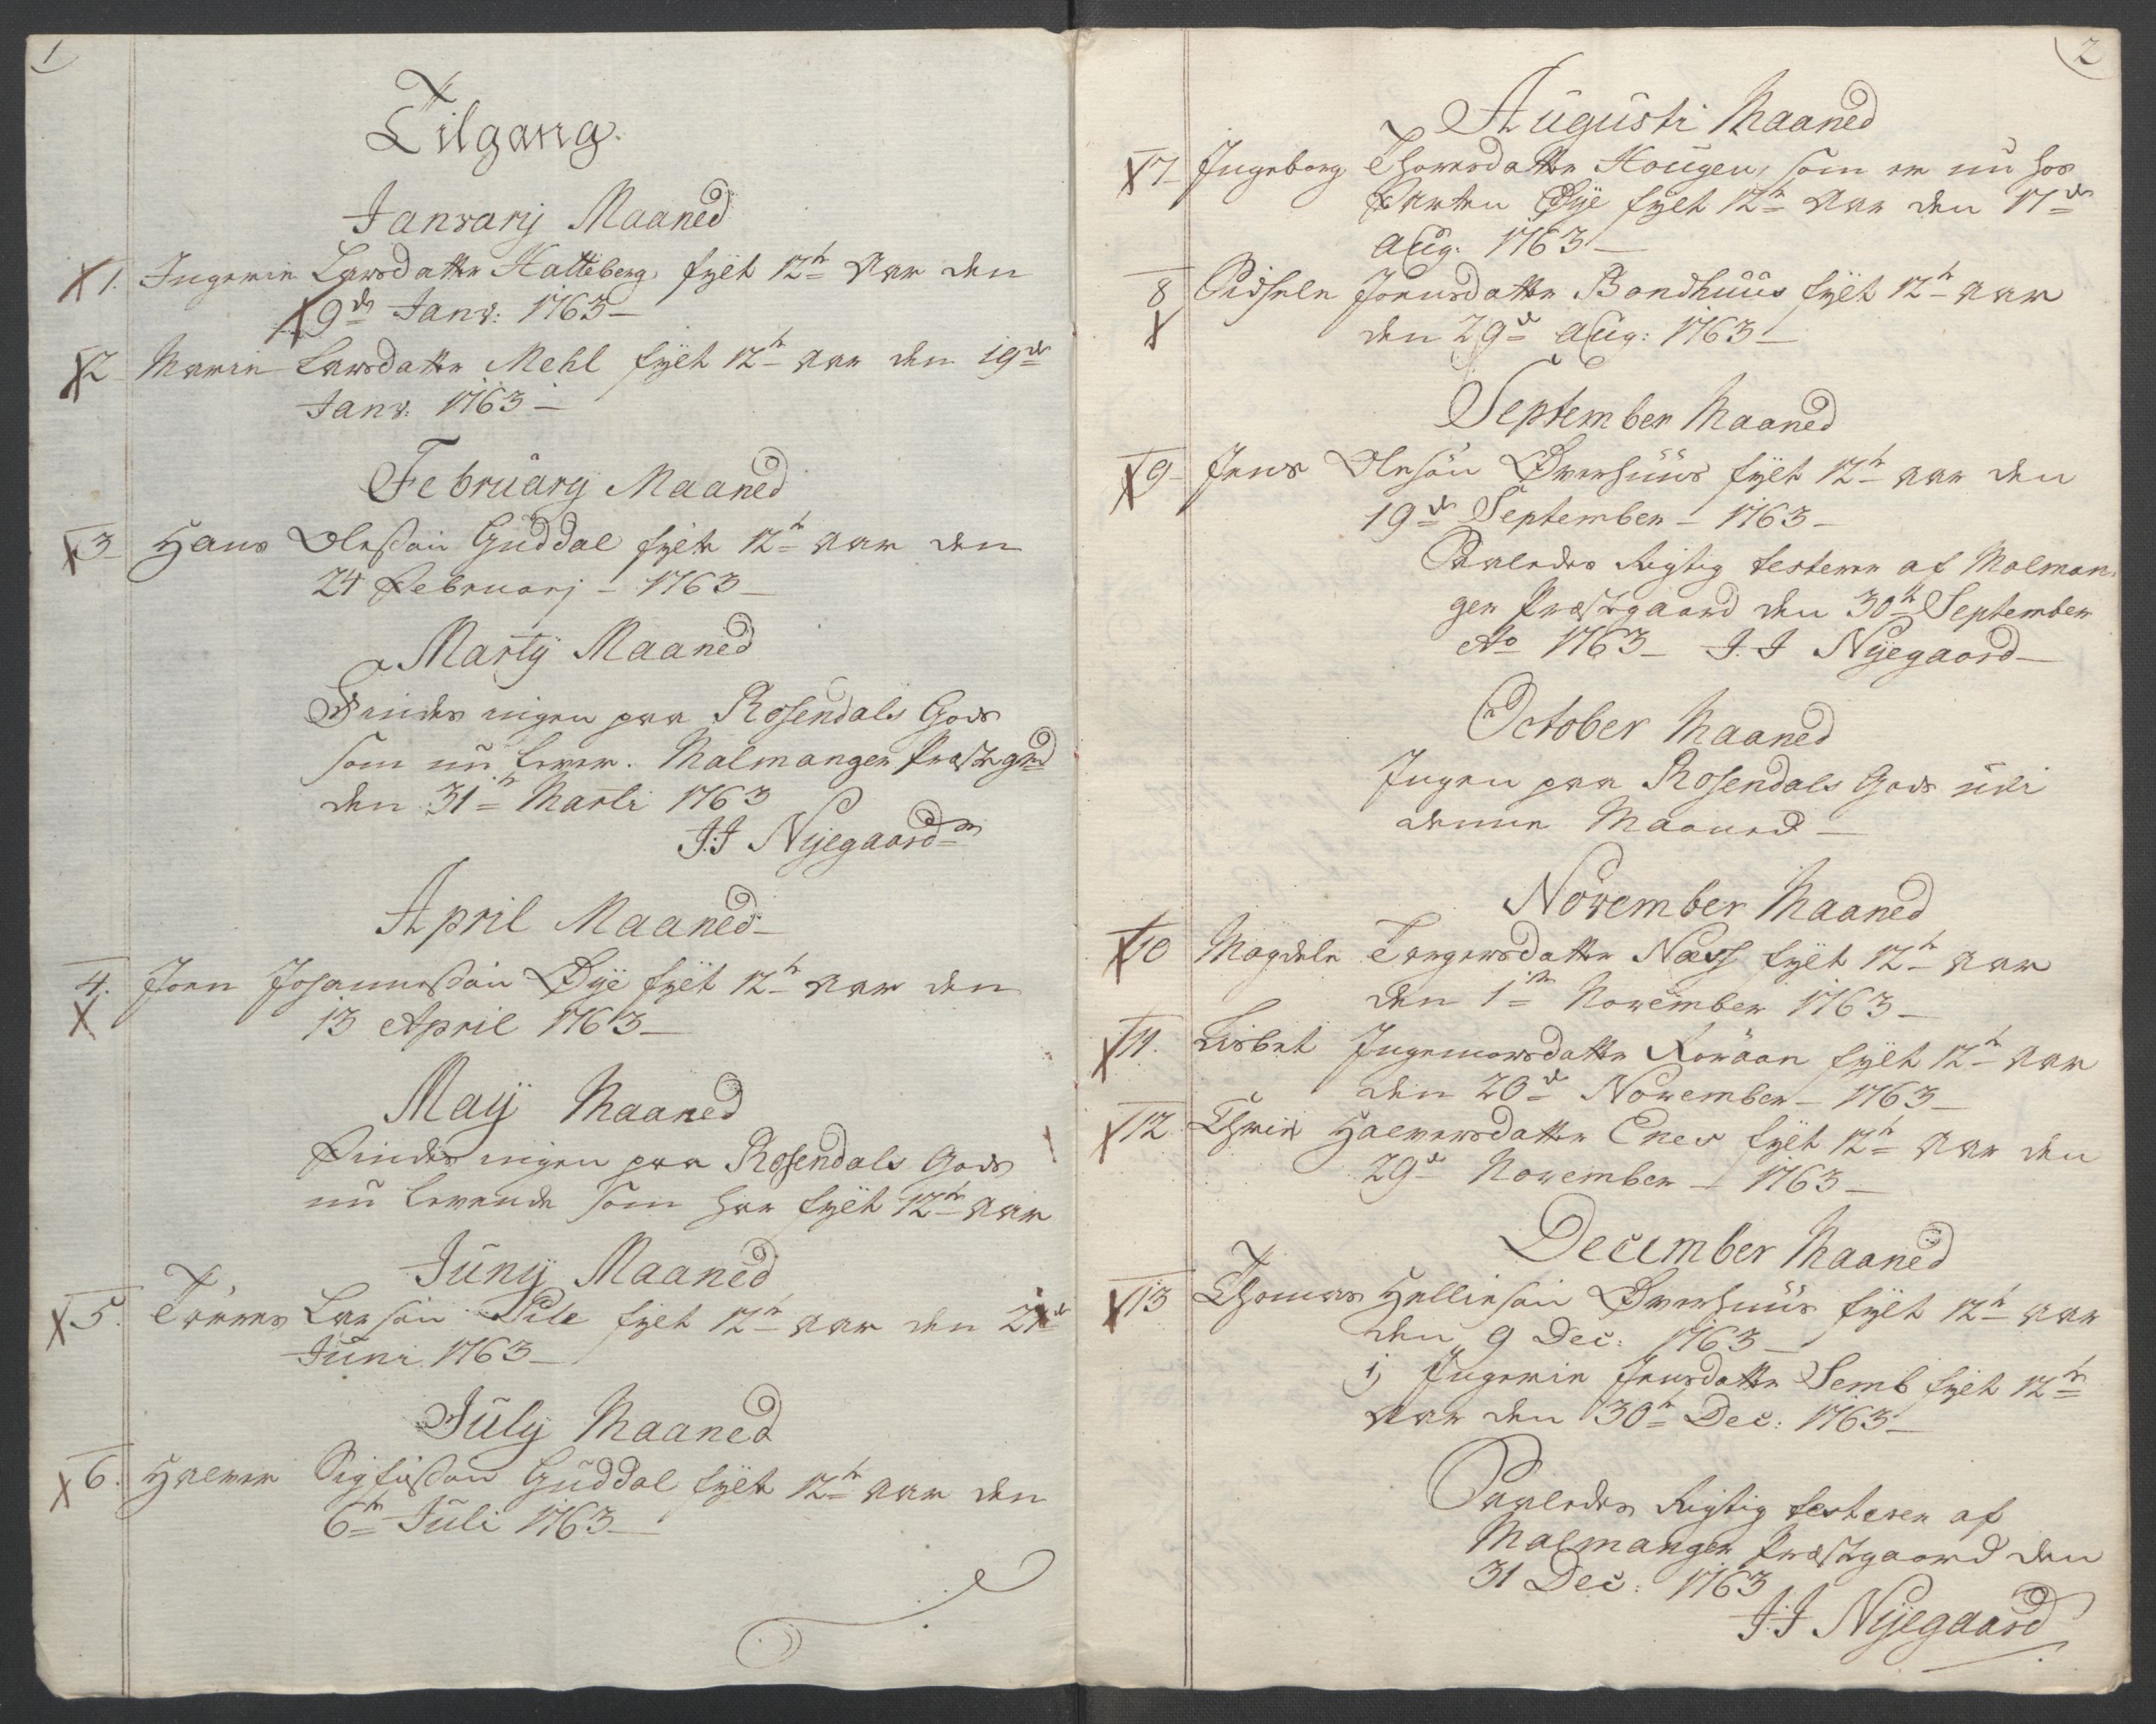 1
Tilgang.
Janvarij Maaned
1. Ingerie Larsdatter Hatteberg, fyLt 12te Aar den
9de Janv: 1763 —
2 Marie Larsdatter Mehl fylt 12te Aar den 19de
Janv: 1763 —
February Maaned
3 Hans Olessøn Guddal fylt 12te Aar den
24 Februarj — 1763 —
Martij Maaned
Findes ingen paa Rosendals Gods
som nu lever. Malmanger Præstegrd
den 31te Marti 1763
J:J Nyegaard
April Maaned —
4. Joen Johannessøn Øye fylt 12te Aar den
13 April 1763 —
Maij Maaned
Findes ingen paa Rosendals Gods
nu levende som har fylt 12te Aar
Junij Maaned
5. Larsøn Pile fylt 12te Aar den
Juni 1763 —
July Maaned
6. Halver Sigfussøn Guddal fylt 12te Aar den
6te Juli 1763 —
2
Augusti Maaned
7 Ingeborg Thoresdatter Hougen, som er nu hos
Øye fylt 12te Aar den 17de
Aug: 1763 —
8 Sidsele Joensdatter Bondhuus fylt 12te Aar
den 29de Aug: 1763 —
September Maaned
9 Jens Olesøn Øverhuus fylt 12te Aar den
19de September — 1763 —
Saaledes Rigtig testerer af Malman-
ger Præstegaard den 30te September
Ao 1763 — J.J Nyegaard —
October Maaned
Ingen paa Rosendals Gods udi
denne Maaned —
November Maaned
10 Magdele Torgersdatter Næss fylt 12te Aar
den 1te November 1763 —
11. Lisbet Ingemorsdatter fylt 12te Aar
den 20de November — 1763 —
12. Halversdatter Enes fylt 12te Aar den
29de November — 1763 —
December Maaned
13 Thomas Helliesøn Øverhuus fylt 12te Aar
den 9 Dec: 1763 —
j) Ingerie Jensdatter Semb fylt 12te
Aar den 30te Dec: 1763 —
Saaledes Rigtig testerer af
Malmanger Præstegaard den
31 Dec: 1763
J:J Nyegaard